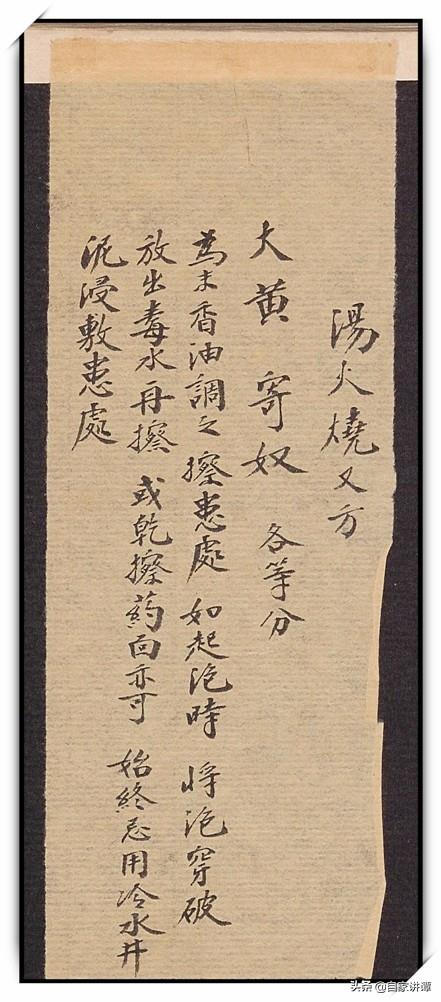 湯火燒又方
大黄 寄奴 各等分
為末香油調之擦患處 如起泡時 将泡穿破
放出毒水再擦 或乾擦药面亦可 始終忌用冷水井
泥浸敷患處
头条 @自家讲谭